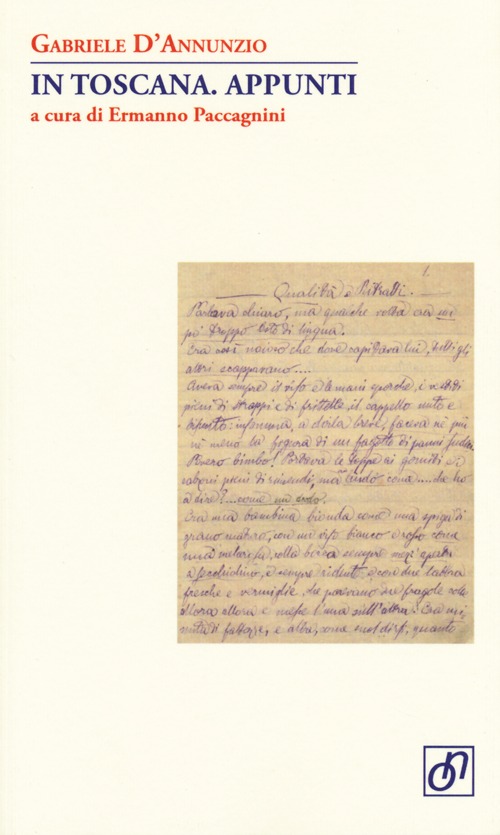 GABRIELE D'ANNUNZIO
IN TOSCANA. APPUNTI
a cura di Ermanno Paccagnini
1.
Qualità e Ritratti.
Parlava chiaro, ma qualche volta era un
po' troppo lesto di lingua.
Era così noioso che dove capitava lui, tutti gli
altri scappavano....
Aveva sempre il viso e le mani sporche, i vestiti
pieni di strappi e di frittelle, il cappello unto e
bisunto: insomma, a dirla breve, faceva nè più
nè meno la figura di un fagotto di panni sudici.
Povero bimbo! Portava le toppe ai gomiti e i
calzoni pieni di rimendi, ma lindo come.... che ho
a dire?... come uno specchio.
Era una bambina bionda come una spiga di
grano maturo, con un viso bianco e rosso come
una melarosa, colla bocca sempre mezz'aperta
a secchiolino, e sempre ridente, e con due labbra
fresche e vermiglie, che parevano due fragole colte
allora allora e messe l'una sull'altra. Era mi
nuta di fattezze, e alta, come suol dirsi, quanto
on